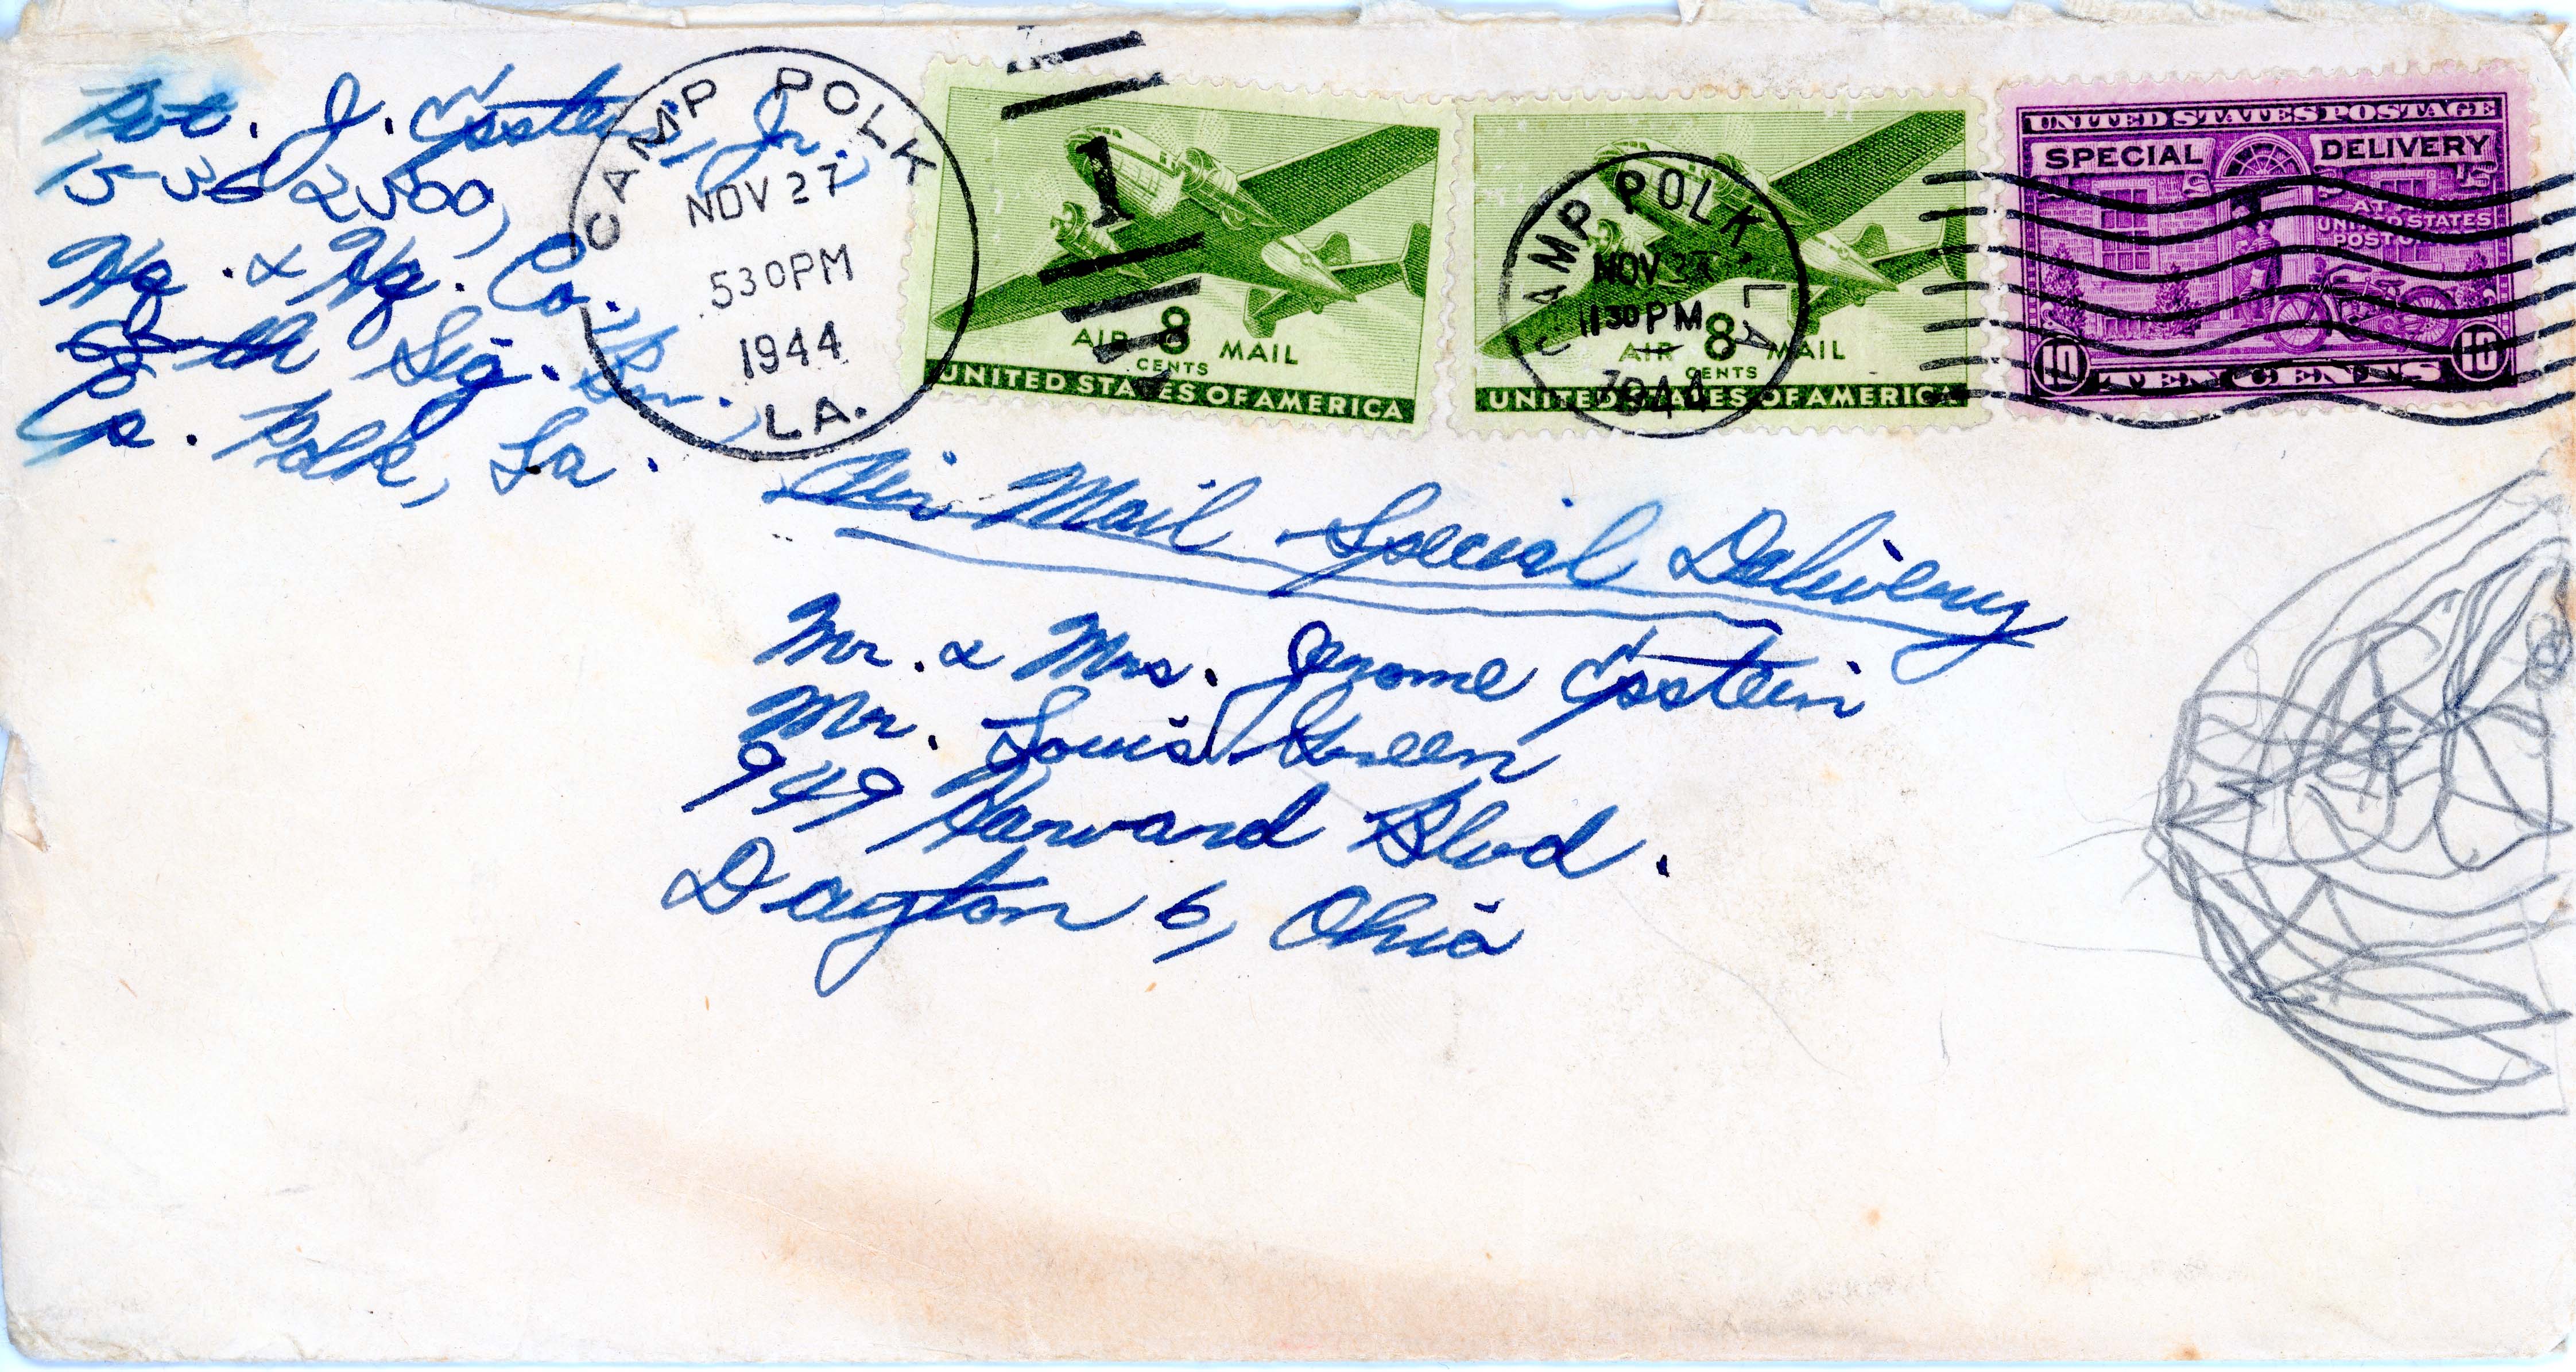 Pvt. J. Epstein, Jr.,
15362500,
Hq. & Hq. Co.,
Sig. Bn.,
Ca. Polk, La.
CAMP POLK
NOV 27
530PM
1944
LA.
1
AIR 8 MAIL
CENTS
UNITED STATES OF AMERICA
CAMP POLK LA
NOV 27
1130PM
1944
AIR 8 MAIL
CENTS
UNITED STATES OF AMERICA
UNITED STATES POSTAGE
SPECIAL DELIVERY
AT
UNITED STATES
POST OFFICE
10 TEN CENTS 10
Air Mail Special Delivery
Mr. & Mrs. Jerome Epstein
Mr. Louis J. Green
949 Harvard Blvd.
Dayton 6, Ohio